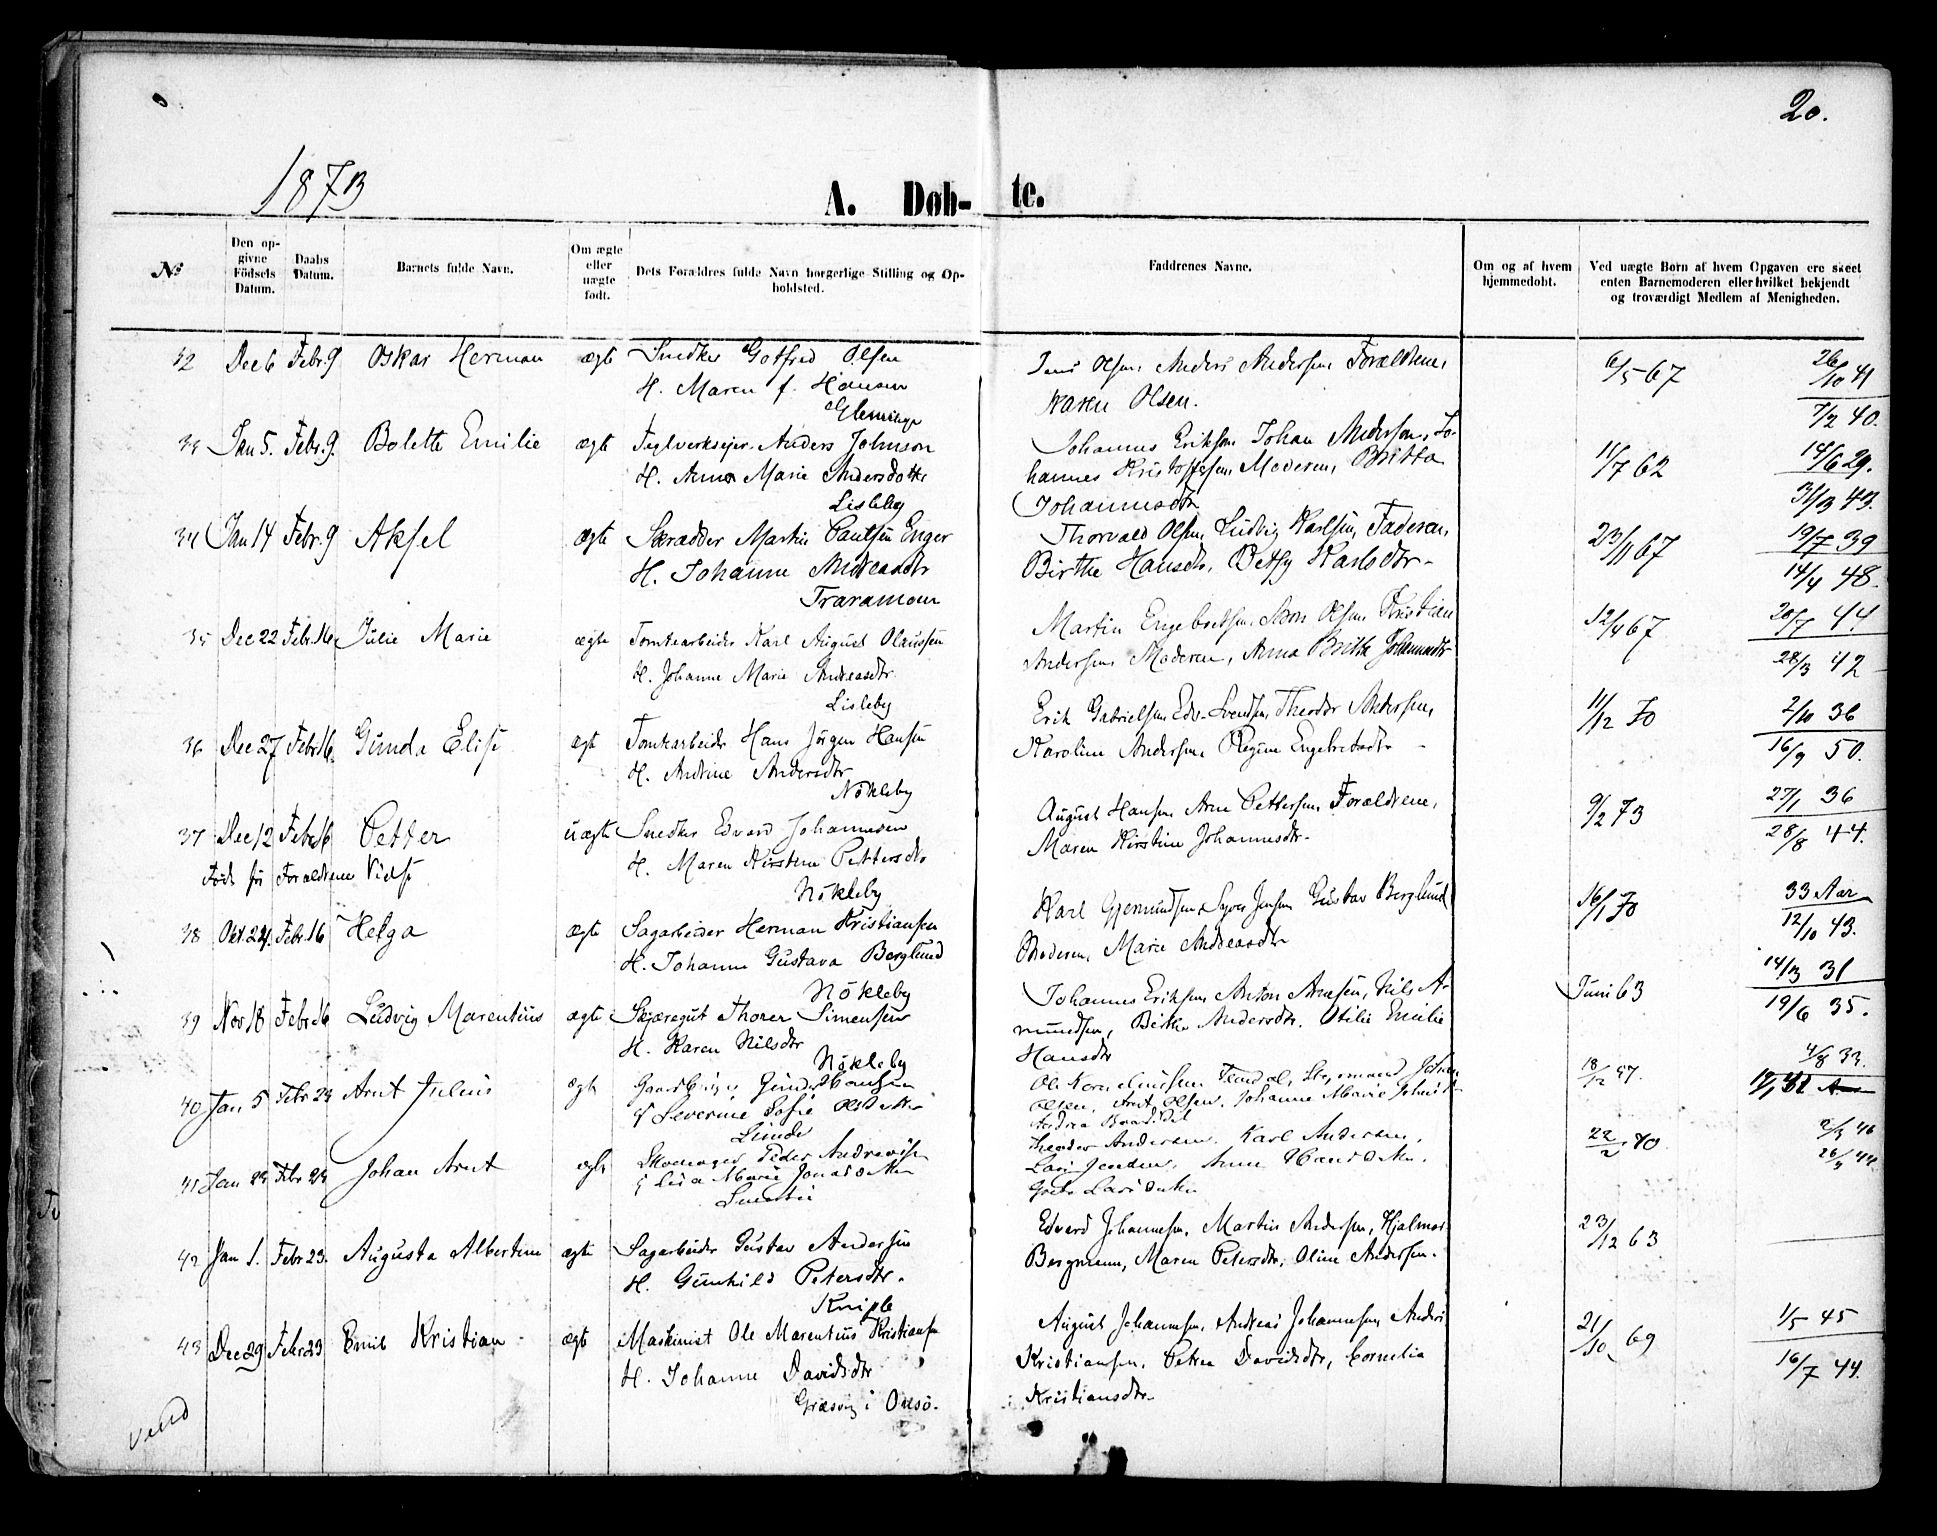 20.
1873
A. Døbte.
№
Den opgivne Födsels Datum.
Daabs Datum.
Barnets fulde Navn.
Om ægte eller uægte födt.
Dets Forældres fulde Navn borgerlige Stilling og Opholdsted.
Faddrenes Navne.
Om og af hvem hjemmedobt.
Ved uægte Born af hvem Opgaven ere skeet enten Barnemoderen eller hvilket bekjendt og troværdigt Medlem af Menigheden.
32 Dec 6 Febr. 9 Oskar Herman ægte Snedker Gotfred Olsen
H. Maren f. Hansen
Glemminge
Jens Olsen, Anders Andersen, Forældrene,
Karen Olsen.
6/5 67
26/10 41
7/2 40.
33 Jan 5. Febr. 9. Bolette Emilie ægte Teglverksejer Anders Johnson
H. Anna Marie Andersdotter
Lisleby
Johannes Eriksen, Johan Andersen, Jo-
hannes Kristoffersen, Moderen, Britta
Johannesdtr
11/7 62
14/6 29.
31/3 43.
34 Jan 14 Febr. 9 Aksel ægte Skrædder Martin Paulsen Enger
H. Johanne Andreasdtr
Traramoen
Thorvald Olsen, Ludvig Karlsen, Faderen,
Birthe Hansdtr, Betsy Karlsdtr.
23/11 67
19/7 39
14/4 48.
35 Dec 22 Febr. 16 Julie Marie ægte Tomtearbeider Karl August Olaussen
H. Johanne Marie Andreasdtr.
Lisleby
Martin Engebretsen, Olsen, Kristian
Andersen, Moderen, Anna Birthe Johannesdtr
12/4 67
28/7 44.
28/3 42
36 Dec 27 Febr. 16. Gunda Elise ægte Tomtearbeider Hans Jörgen Hansen
H. Andrine Andersdtr
Nökleby
Erik Gabrielsen, Edv. Svendsen, Theodor Andersen,
Karoline Andersen, Regine Engebretsdtr.
11/12 70
2/10 36
16/9 50.
37 Dec 12 Febr. 16 Petter uægte Snedker Edvard Johannesen
Födt för Forældrene Vielse
H. Maren Kirstine Pettersdtr
Nökleby
August Hansen, Arne Pettersen, Forældrene,
Maren Kirstine Johannesdtr.
9/2 73
27/1 36
28/8 44.
38 Okt. 24. Febr. 16 Helga ægte Sagarbeider Herman Kristiansen
H. Johanne Gustava Berglund
Nökleby
Karl Gjermundsen, Syver Jensen, Gustav Berglund
Moderen, Marie Andreasdtr
16/1 70
33 Aar
12/10 43.
39 Nov 18 Febr. 16 Ludvig Marentius ægte Skjæregut Thorer Simensen
H. Karen Nilsdtr
Nökleby
Johannes Eriksen, Anton Arnesen, Nils A-
mundsen, Birthe Andersdtr. Otilie Emilie
Hansdtr
Juni 63
14/3 31
19/6 35.
40 Jan 5 Febr 23 Arnt Julius ægte Hansen
Severine Sofie Olsdatter
Lunde
Ole Kornelius­sen
Olsen, Arnt Olsen, Johanne Marie
18/12 47.
4/8 33.
41 Jan 23 Febr 23 Johan Arnt ægte Peder Andreassen
Lisa Marie Jonasdatter
Theodor Andersen. Karl Andersen,
Lars Jensen, Anne Hansdatter.
Grete Larsdatter
22/2 70
2/3 46
26/9 44.
42 Jan 1. Febr 23. Augusta Albertine ægte Sagarbeider Gustav Andersen
H. Gunhild Petersdtr.
Kniple
Edvard Johannesen, Martin Andersen, Hjalmar
Bergmann, Maren Petersdtr, Oline Andersen.
23/12 63
43 Dec 29 Febr 23 Emil Kristian ægte Maskinist Ole Marentius Kristiansen
H. Johanne Davidsdtr
Græsvig i Onsö.
August Johannesen, Andreas Johannesen, Anders
Kristiansen, Petra Davidsdtr, Cornelia
Kristiansdtr.
21/10 69
1/5 45
16/7 44.
vend